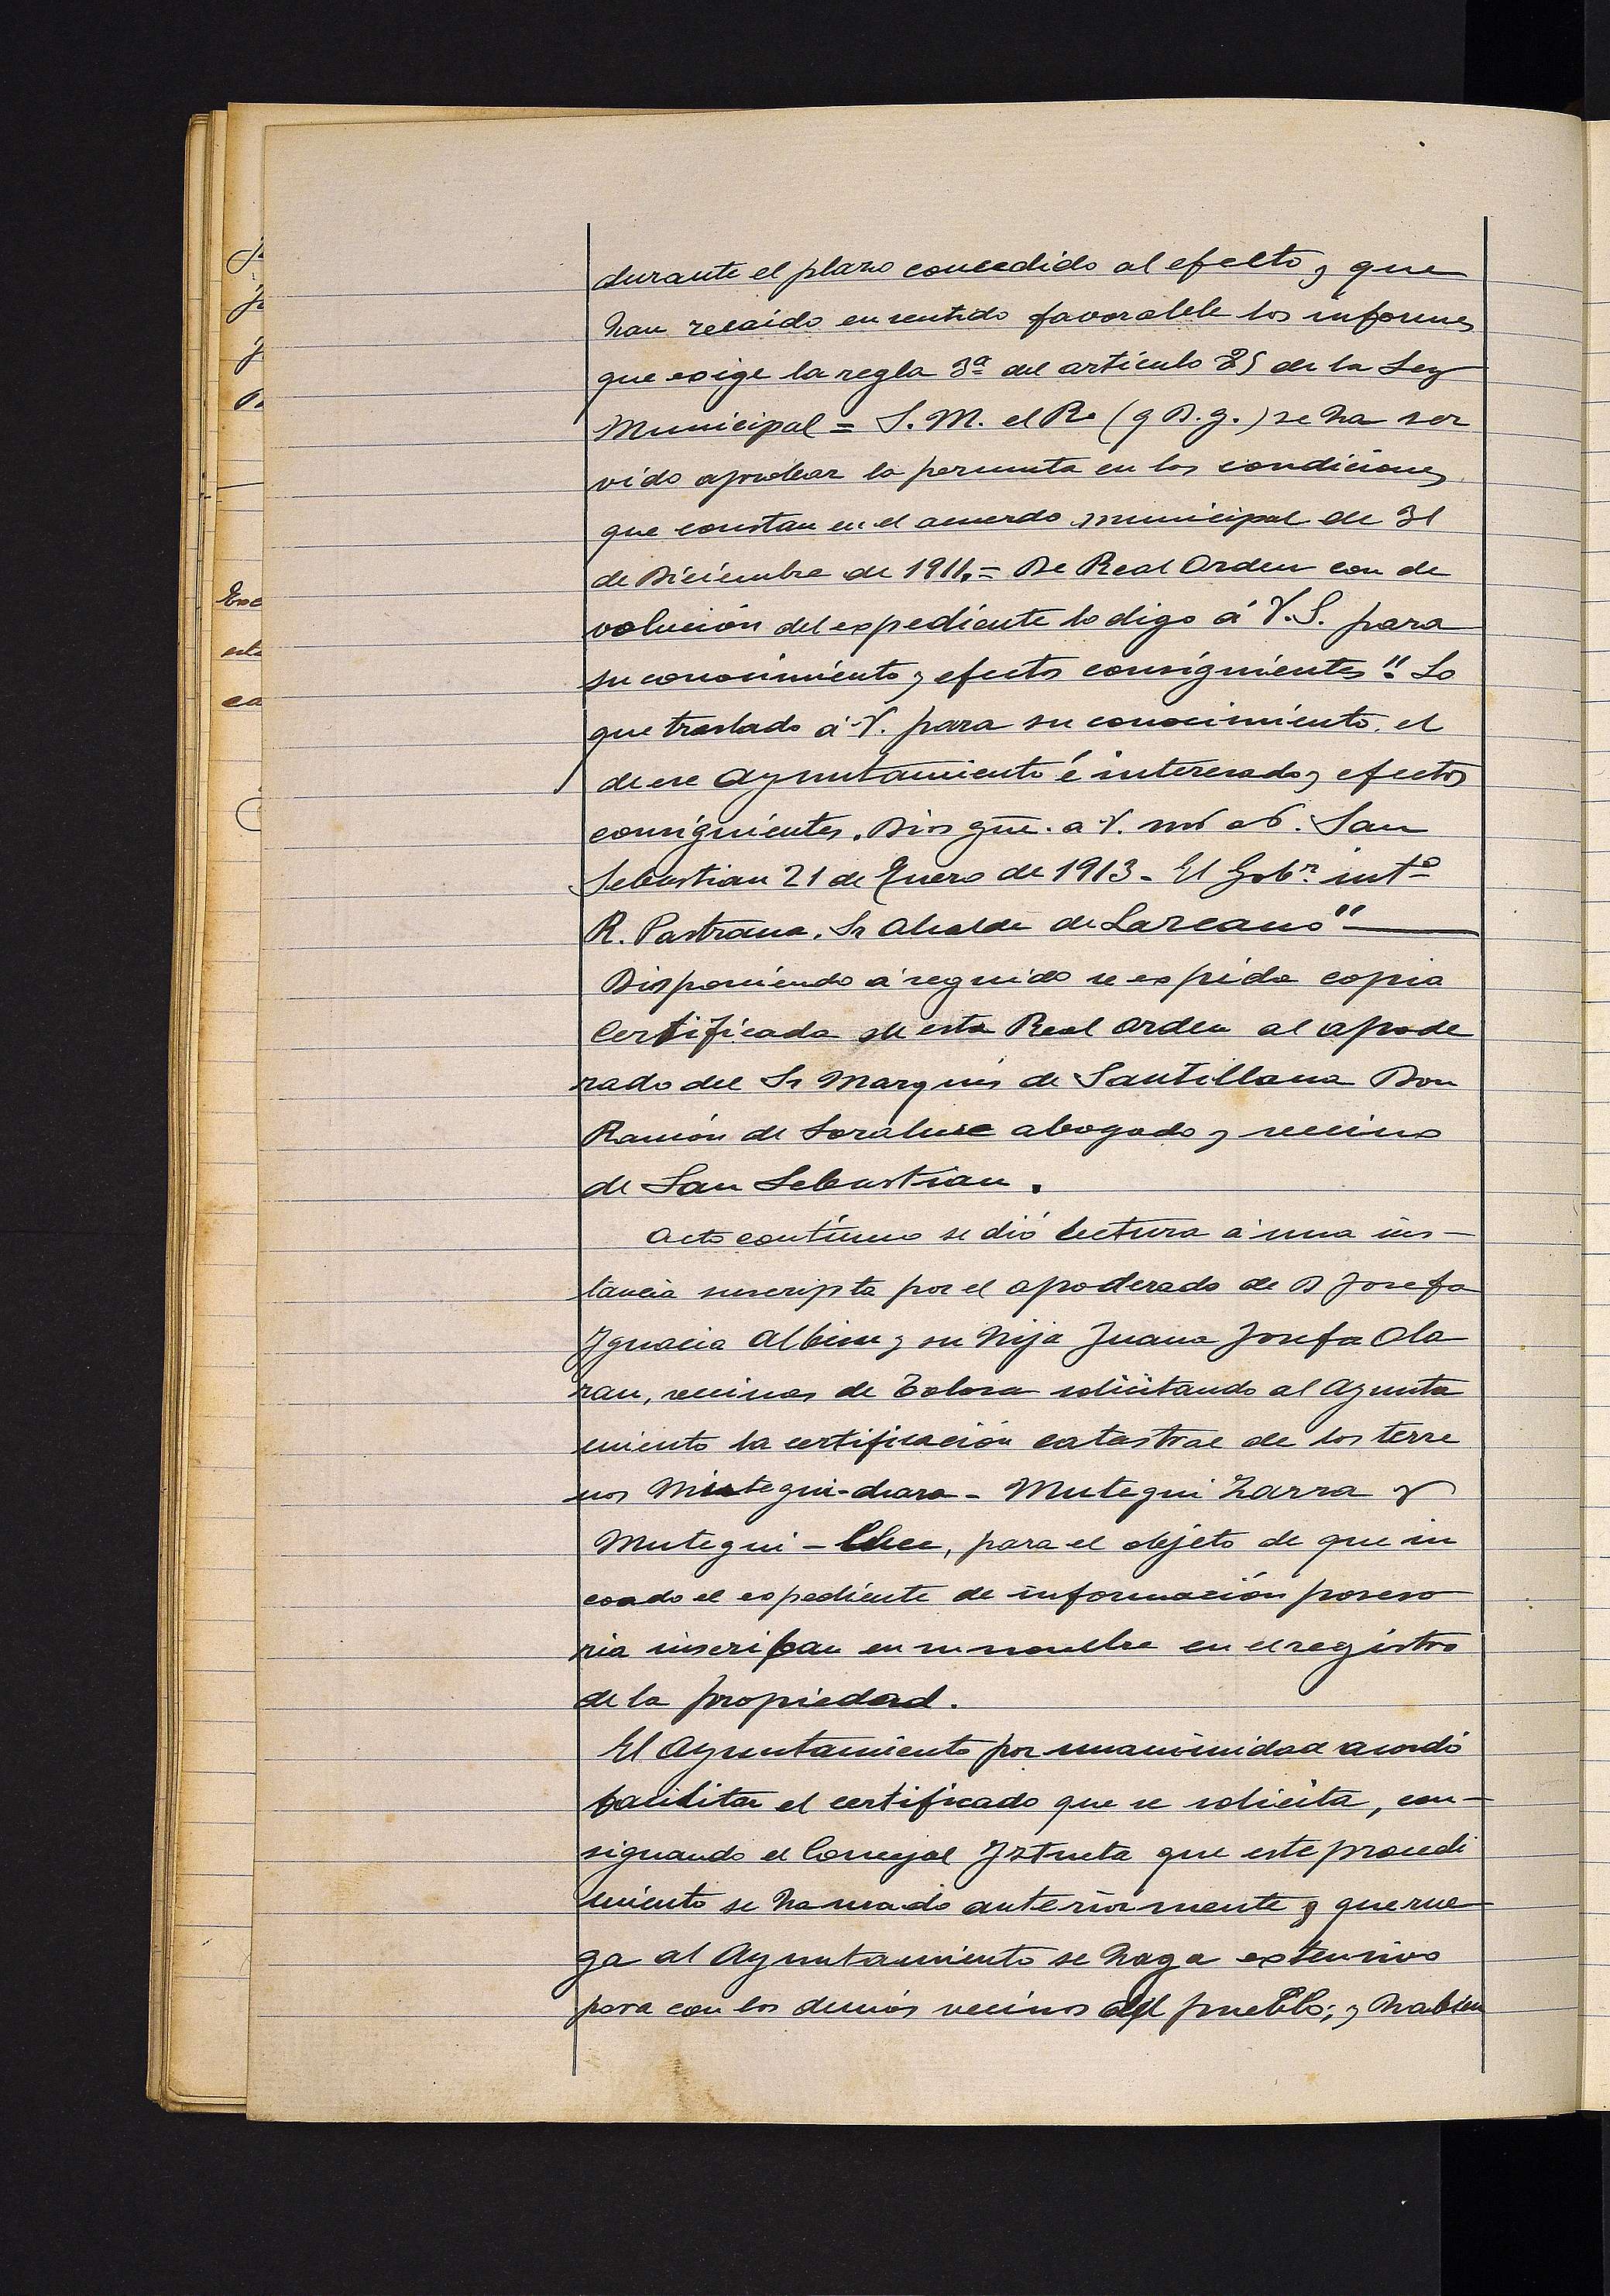 durante el plazo concedido al efecto y que
han recaido en sentido favorable los informes
que exige la regla 3ª del artículo 85 de la Ley
Municipal = S. M. el R. (q D. g.) se ha ser
vido aprobar la permuta en las condiciones
que constan en el acuerdo municipal de 31
de Diciembre de 1911. = De Real Orden con de
volución del expediente lo digo á V. S. para
su conocimiento y efectos consiguientes". Lo
que traslado á V. para su conocimiento, el
de ese Ayuntamiento é interesado y efectos
consiguientes. Dios gue. a V. ms as. San
Sebastian 21 de Enero de 1913 - El Gobr. intº
R. Pastrana. Sr Alcalde de Lazcano"
Disponiendo á seguido se expida copia
Certificada de esta Real Orden al apode
rado del Sr Marqués de Santillana Don
Ramón de Soraluce abogado y vecino
de San Sebastian.
Acto contínuo se dió lectura á una ins-
tancia suscripta por el apoderado de D Josefa
Ygnacia Albisu y su hija Juana Josefa Ola
ran, vecinas de Tolosa solicitando al Ayunta
miento la certificación catastral de los terre
nos Mutegui-chara - Mutegui Zarra y
Mutegui - , para el objeto de que in
coado el expediente de información poseso
ria inscriban en su nombre en el registro
de la propiedad.
El Ayuntamiento por unanimidad acordó
facilitar el certificado que se solicita, con-
signando el Concejal Yztueta que este procedi
miento se ha usado anteriormente y que rue
ga al Ayuntamiento se haga extensivo
para con los demás vecinos del pueblo; y habien